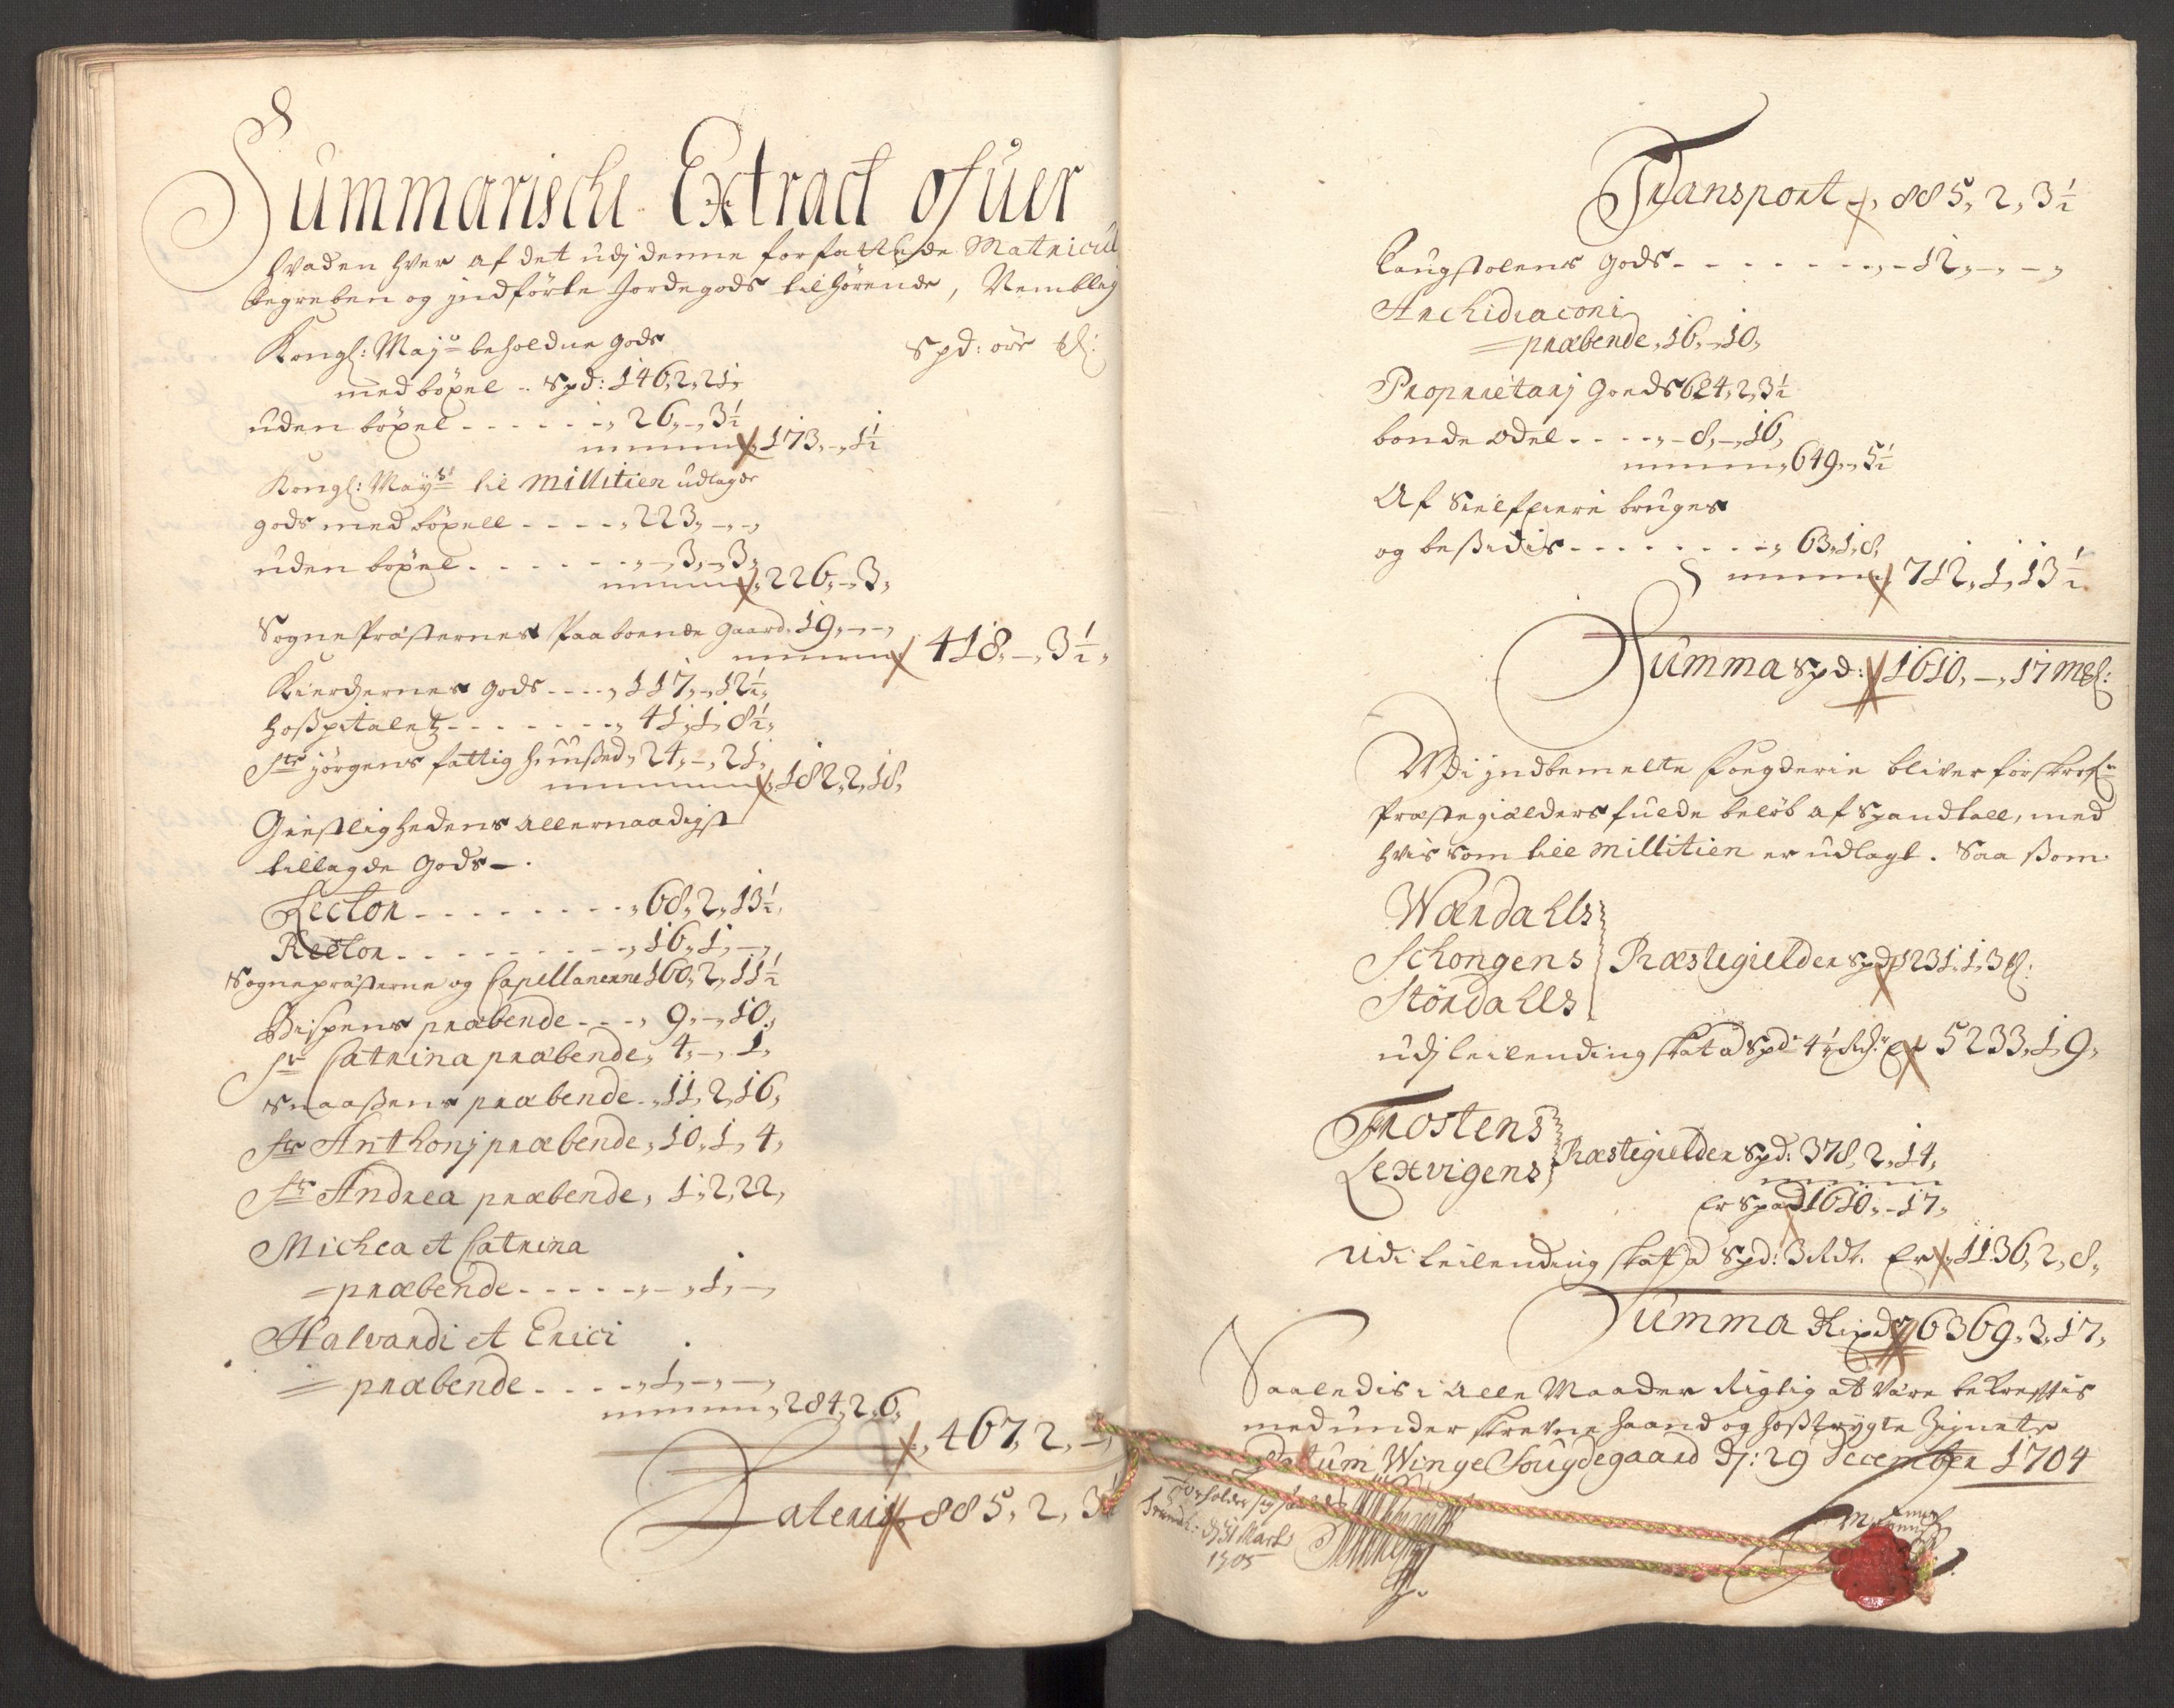 Summarische Extract ofuer
hvaden hver af det udj denne forfattede Matricul
begreben og jndførte Jordegods tilhørende, Nemblig
Kongl: Mayts beholdne gods Spd: øre ſl:
med böxel .. Spd: 146,2,21,
uden böxel - - - - - -, 26,-,3½
173,-,1½
Kongl: Mayts til Millitien udlagde
gods med böxell - - - -, 223,-,-,
uden böxel - - - - - -, -,3,-,3,
226,-,3,
Sognepræsternes Paaboende gaard, 19,-,-,
418,-,3½,
Kierchernes gods - - - -, 117,-,12½,
hoßpitaletz - - - - - - -, 41,1,8½,
Sts jörgens fattig huußed, 24,-,21,
182,2,18,
Giestlighedens allernaadigst
tillagde Gods -.
Lector - - - - - - - -, 68,2,13½,
Rector - - - - - - - - -, 16,1,-,
Sognepræsterne og Capellanerne 160,2,11½
Bispens præbende - - -, 9,-,10,
St Catrina præbende, 4,-,1,
Snaaßens præbende - ,11,2,16,
Sts Anthonj præbende, 10,1,4,
Sts Andrea præbende, 1,2,22,
Michea et Catrina
= præbende - - - - -, -,1,-,
Halvardi et Erici
= præbende - - - -, 1,-,-,
284,2,6,
467,2,-,
Lateris 885,2,3½
Transport, 885,2,3½
Laugstolens gods - - - - - - - -,-12,-,-,
Archidiaconi
= præbende, 16,-,10,
Proprietarj Goeds 624,2,3½
bonde odel - - - -,-8,-,16,
649,-,5½
Af Sielfeiere bruges
og beßidis - - - - - - - -, 63,1,8,
712,1,13½
Summa Spd: 1610,-,17 mkl:
Udi jndbemelte Fougderie bliver forskrefne
Præstegiælders fulde beløb af Spandtall, med
hvis som till Millitien er udlagt. Saa ßom
Wærdahls
Schongens Præstegielder Spd 1231,1,3 ſl:
Stördahls
udj leilending skat a Spd: 4¼ Rdr Er 5233,1,9,
Frostens
Lexvigens Præstegielder Spd: 378,2,14,
Er Spad 1610,-17,
Udi Leilending skat a Spd: 3 Rdt. Er 1136,2,8,
Summa Rixdr 6369,3,17,
Saaledis i alle Maader Rigtig at være bekreftis
med underskrefne haand og hoßtrygte Zignete
Datum Winge Fougdegaard Dj: 29 December 1704
Forholder sig
Trondh: dj 31 Marti
1705